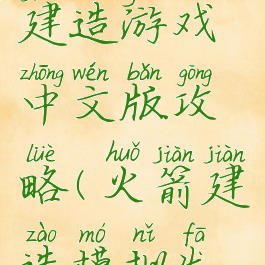 建造游戏
zhōng wén bǎn gōng
中文版攻
lüè huǒ jiàn jiàn
略(火箭建
zào mó nǐ fā
造模拟